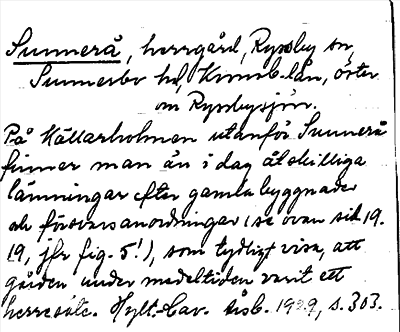 Sunnerå, herrgård, Ryssby sn,
Sunnerbo hd, Kronob. län, öster
om Ryssbysjön.
På Källarholmen utanför Sunnerå
finner man än i dag åtskilliga
lämningar efter gamla byggnader
och försvarsanordningar (se ovan sid. 19.
19, jfr fig. 5!), som tydligt visa, att
gården under medeltiden varit ett
herresäte. Hylt.-Cav. årsb. 1939, s. 303.